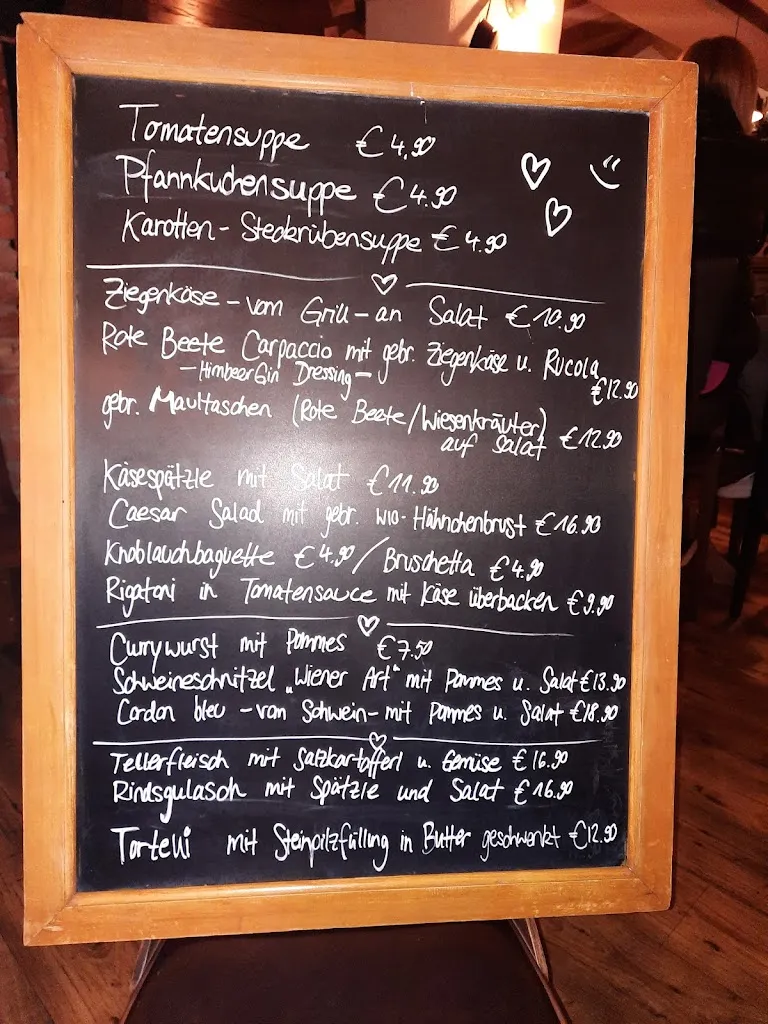 Tomatensuppe €4,90
Pfannkuchensuppe €4.90
Karotten-Steckrübensuppe €4.90
Ziegenkäse - vom Grill - an Salat €10.90
Rote Beete Carpaccio mit gebr. Ziegenkäse u. Rucola
- HimbeerGin Dressing - €12.90
gebr. Maultaschen (Rote Beete/Wiesenkräuter)
auf Salat €12.90
Käsespätzle mit Salat €11.90
Caesar Salad mit gebr. Hähnchenbrust €16.90
Knoblauchbaguette €4.90 / Bruschetta €4.90
Rigatoni in Tomatensauce mit Käse überbacken €9.90
Currywurst mit Pommes €7.50
Schweineschnitzel „Wiener Art" mit Pommes u. Salat €13.90
Cordon bleu - vom Schwein - mit Pommes u. Salat €18.90
Tellerfleisch mit Salzkartofferl u. Gemüse €16.90
Rindsgulasch mit Spätzle und Salat €16.90
mit Steinpilzfüllung in Butter geschwenkt €12.90